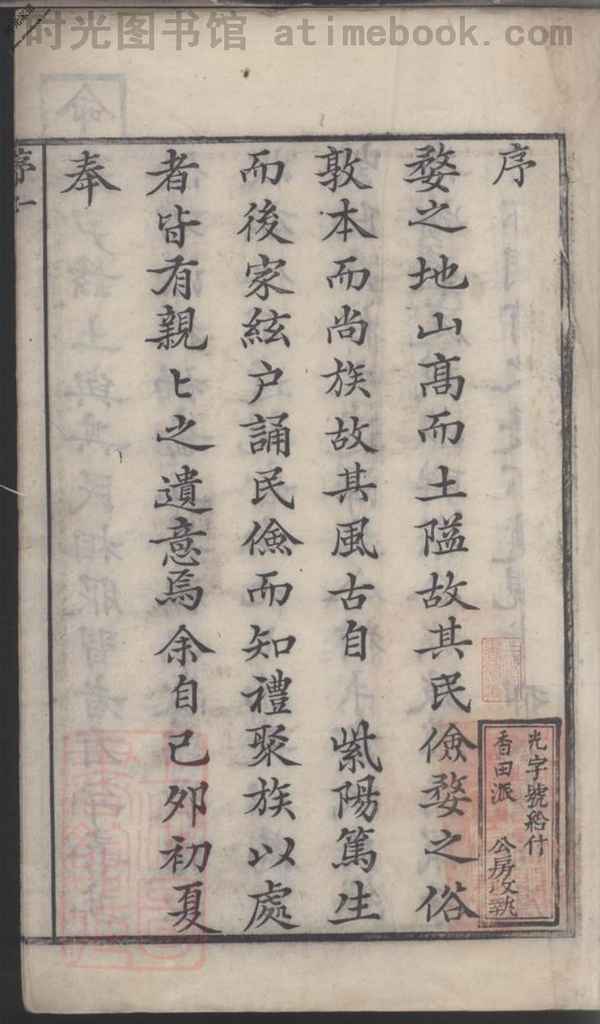 时光图书馆 atimebook.com
序
婺之地山高而土隘故其民儉婺之俗
敦本而尚族故其風古自 紫陽篤生
而後家絃户誦民儉而知禮聚族以處
者皆有親〻之遺意焉余自己夘初夏
奉
序一
光字號給付
香田派 公房收執